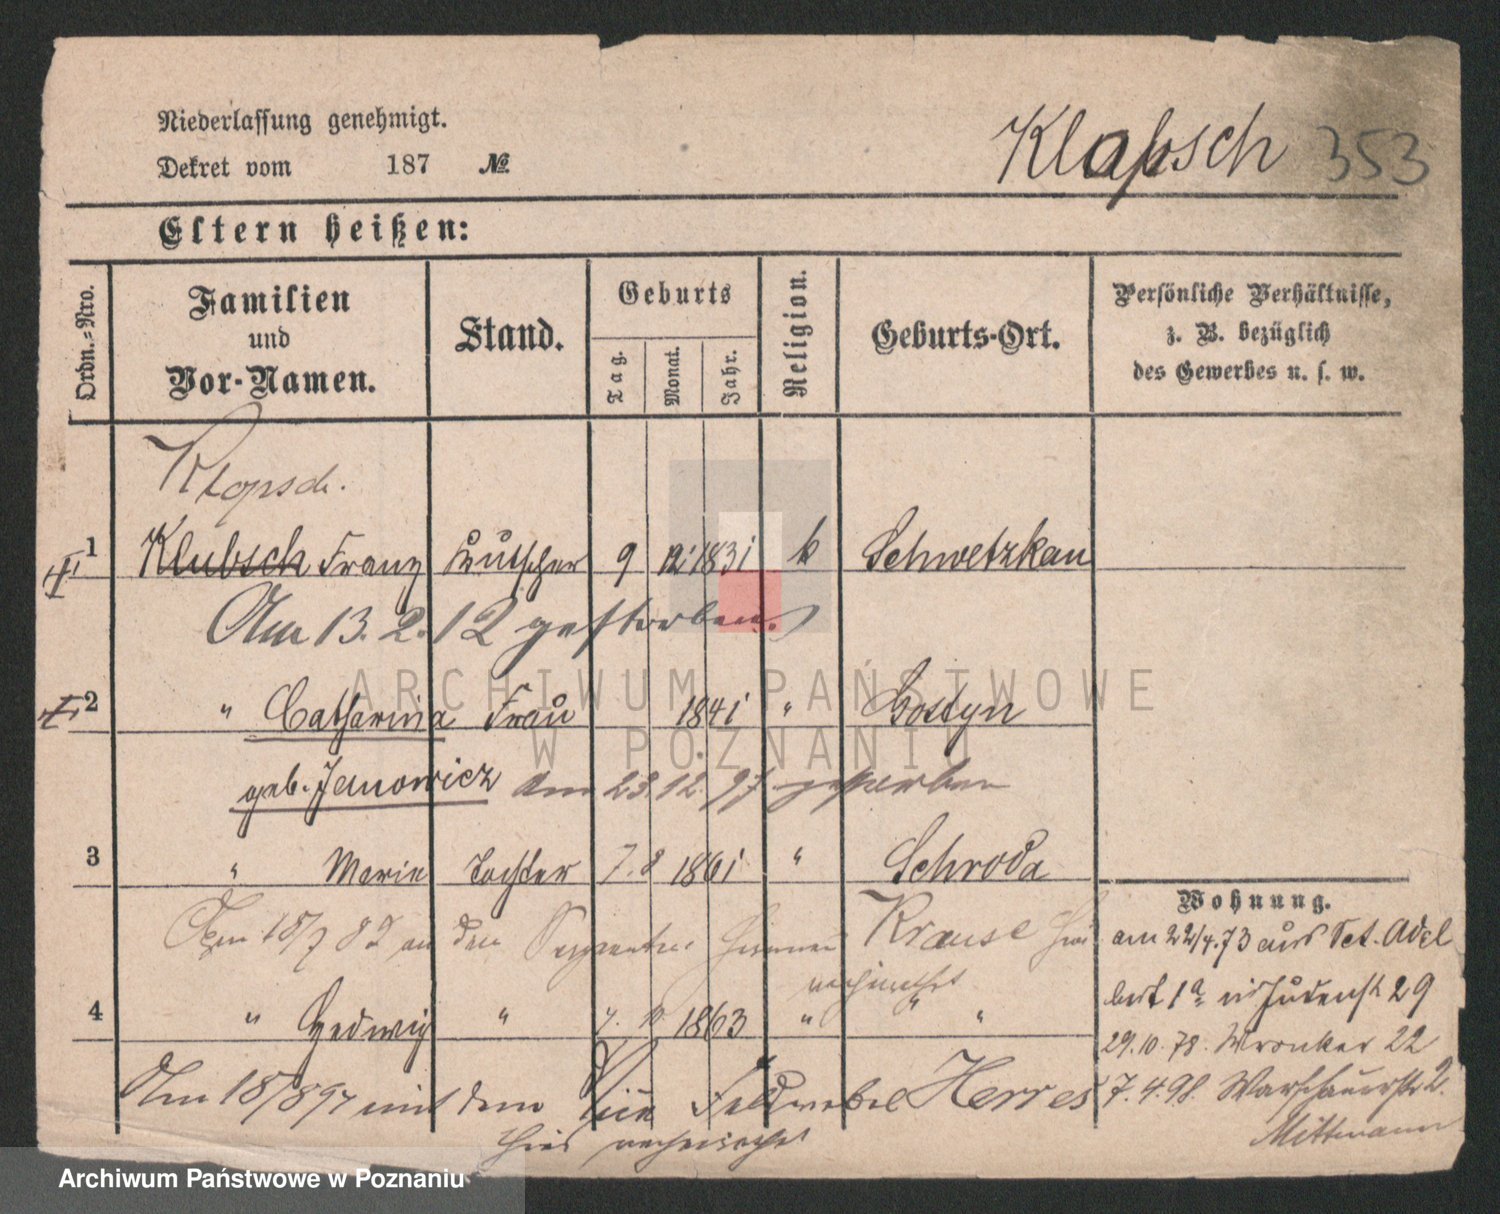 Niederlassung genehmigt.
Dekret vom 187 №
Klapsch 353
Eltern heißen:
Ordn.=Nro.
Familien
und
Vor-Namen.
Stand.
Geburts
Tag.
Monat.
Jahr.
Religion.
Geburts-Ort.
Persönliche Verhältnisse,
z. B. bezüglich
des Gewerbes u. s. w.
Klopsch.
1 Klubsch Franz Kutscher 9 12 1831 k Schwetzkau
Am 13. 2. 12 gestorben.
2 " Catharina Frau 1841 " Gostyn
geb. Janowicz am 23. 12. 97 gestorben
3 " Marie Tochter 7. 8 1861 " Schroda
Am 18/7 82 an den Sergeanten Krause hier
verheirathet
4 " Hedwig " 7. 10. 1863 " " "
Am 18/8 97 mit dem Vice Feldwebel Herres
hier verheirathet
Wohnung.
am 22/4. 73 aus Sct. Adel
bert 1a in Judenst 29
29. 10. 78. Wronker 22
7. 4. 98. Warschauerstr 2.
Mittmann
ARCHIWUM PAŃSTWOWE
W POZNANIU
Archiwum Państwowe w Poznaniu